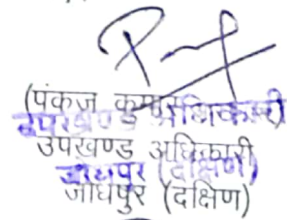 (पंकज कुमार
उपखण्ड अधिकारी
उपखण्ड अधिकारी
जोधपुर (दक्षिण)
जोधपुर (दक्षिण)